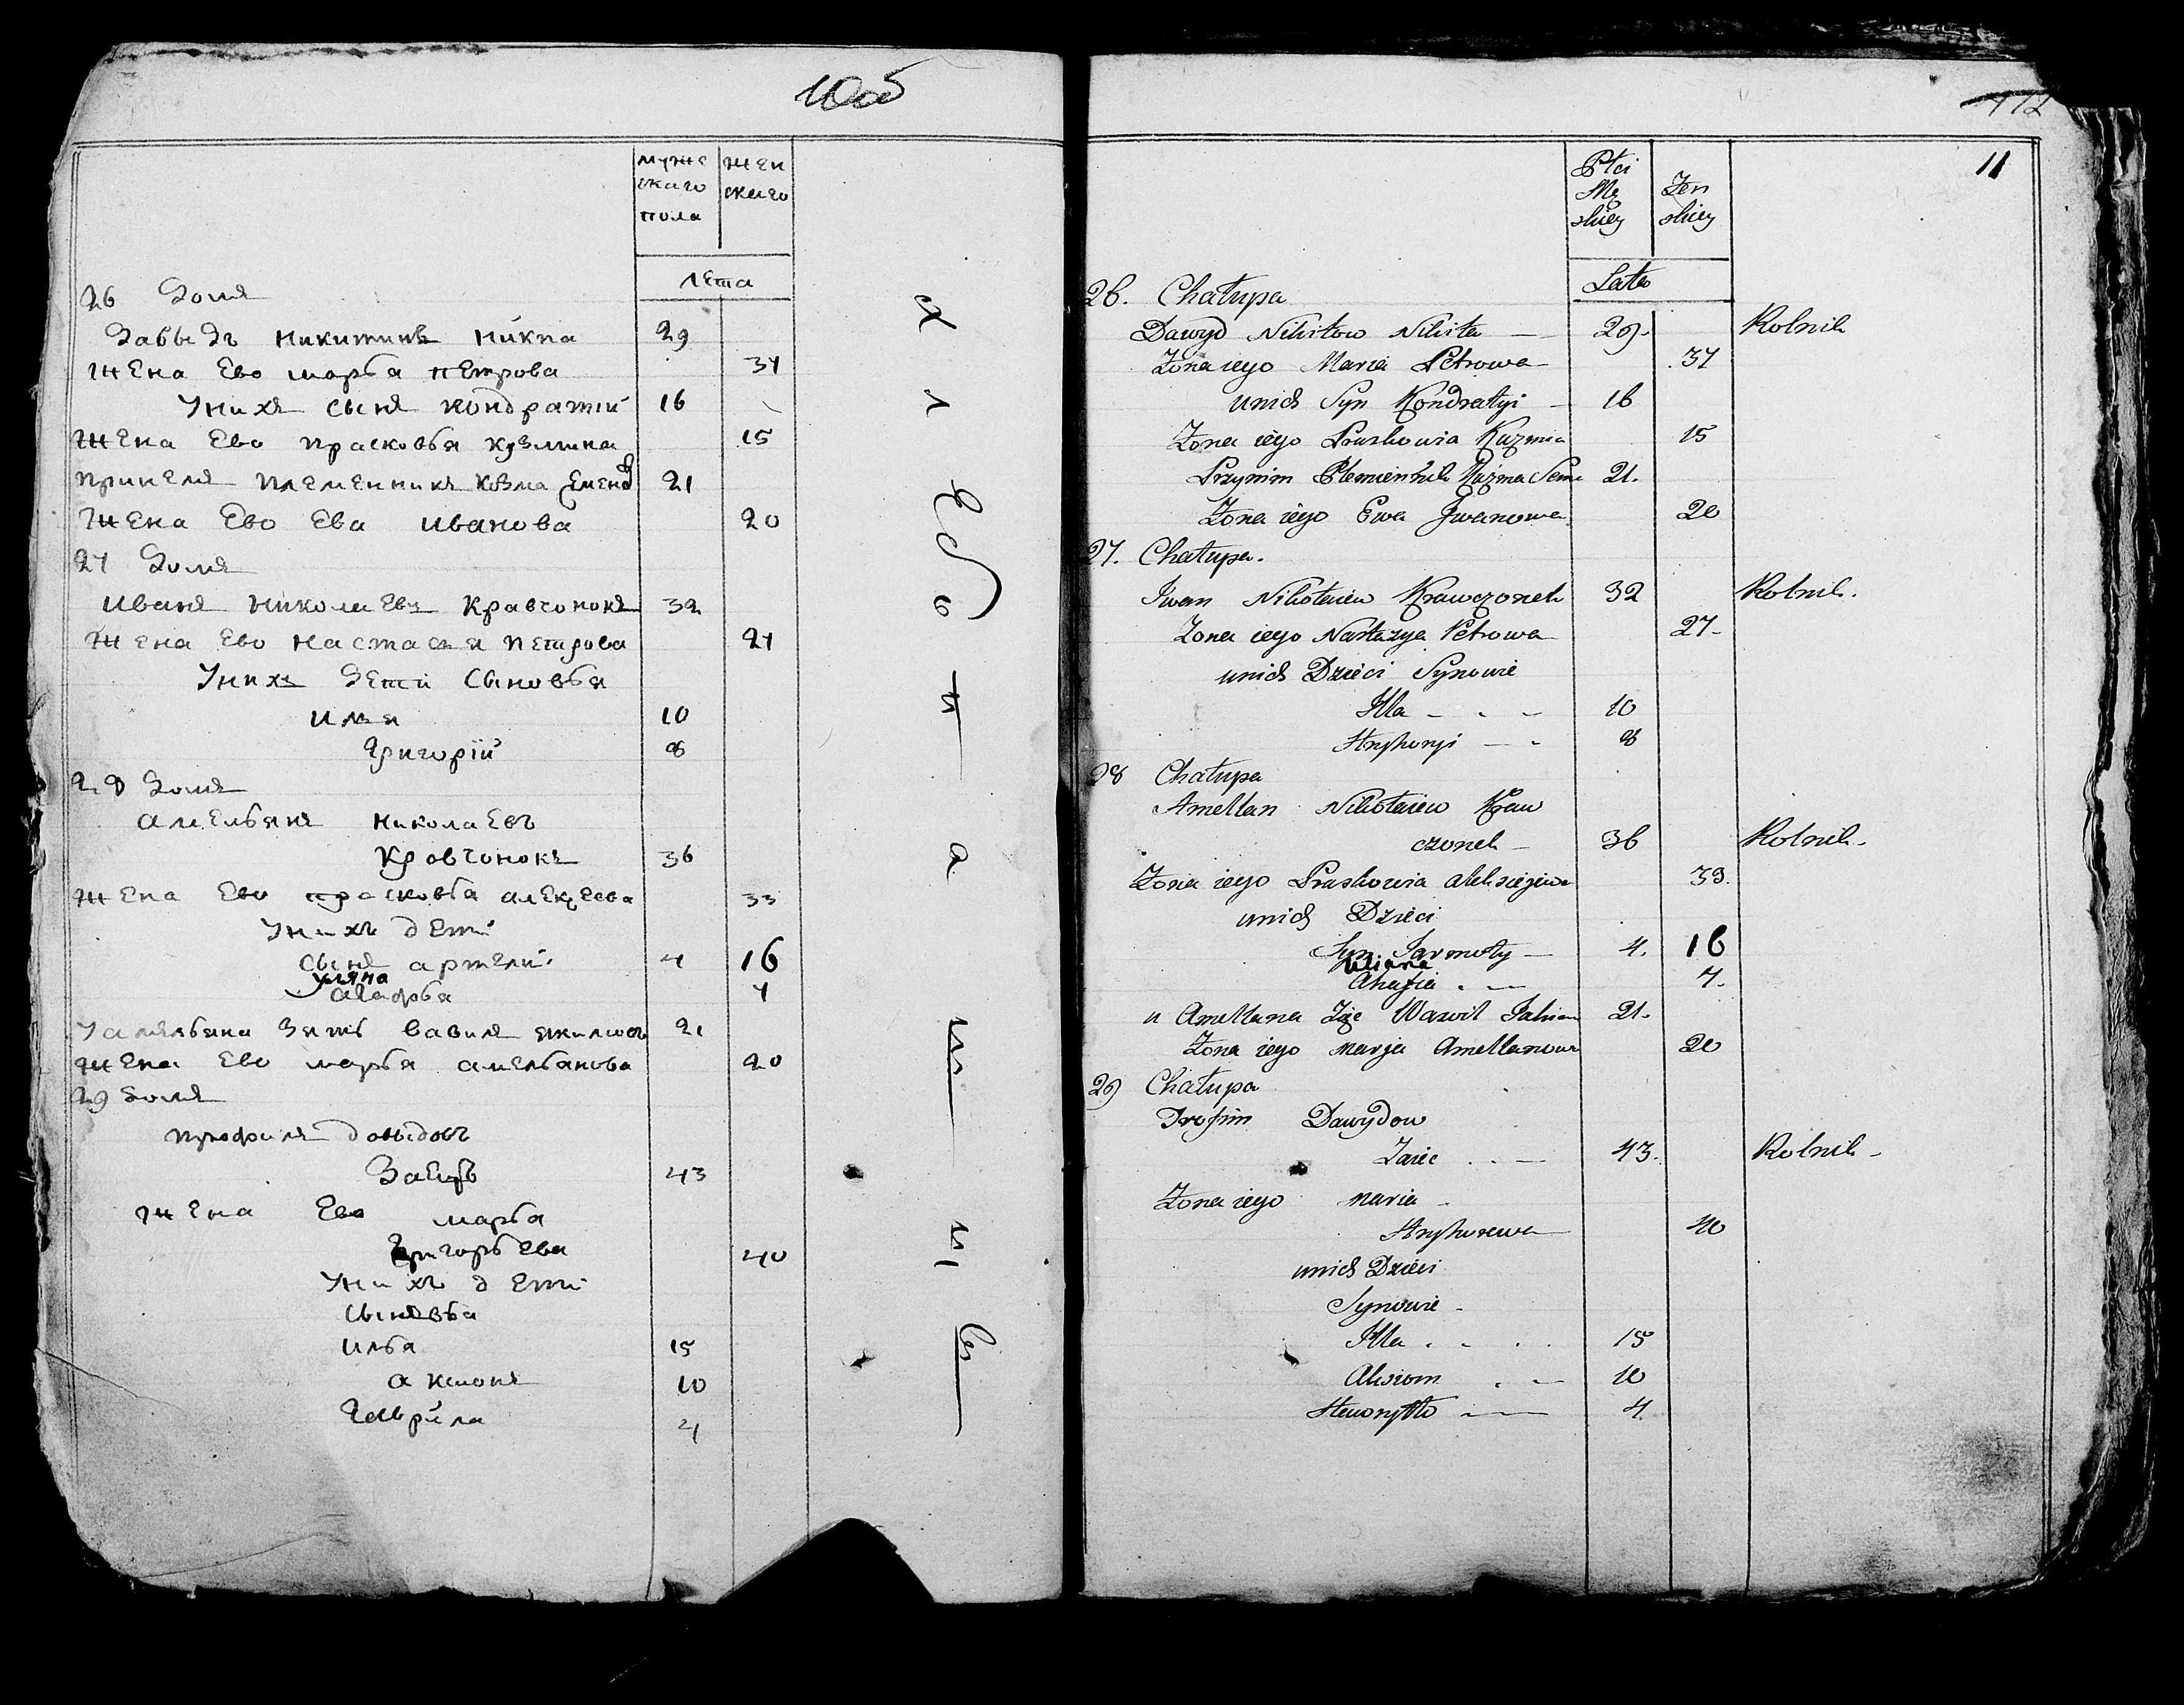 10об
мужс женскаго
скаго
пола
лета
26 Домъ
Давыдъ Никитинъ Никпа 29
Жена Ево марья петрова 37
Унихъ сынъ кондратий 16
Жена Ево прасковья кузмина 15
принемъ племенникъ козма Семенов 21
Жена Ево Ева иванова 20
27 Домъ
иванъ николаевъ Кравчонокъ 32
Жена Ево настасья петрова 27
Унихъ дети сыновья
илья 10
григорїй 8
28 Домъ
амельянъ николаевъ
Кравчонокъ 36
Жена Ево прасковья алекцеева 33
Унихъ дети
сынъ артемий 4 16
уляна
агафья 7
Уамяльяна зять вавила 21
Жена Ево марья амельянова 20
29 домъ
трофимъ давыдовъ
Заецъ 43
Жена Ево марья
григорьева 40
Унихъ дети
сыновья
илья 15
аксионъ 10
гаврила 4
хлебопашецъ
112
11
Płci
Mę Żen
skiey skiey
Lata
26. Chałupa
Dawyd Nikitow Nikita — 29. Rolnik
Żona iego Maria Petrowa 37
unich Syn Kondratyi — 16
Żona iego Praskowia Kuzmia 15
Przynim Plemiennik Kuzma Seme 21.
Żona iego Ewa Jwanowa 20
27. Chałupa.
Iwan Nikołaiew Krawczonek 32 Rolnik.
Żona iego Nastazya Petrowa 27-
unich Dzieci Synowie
Illa - - - 10
Hryhoryi - - 8
28 Chałupa
Amellan Nikołaiew Kraw
czonek — 36 Rolnik.
Żona iego Praskowia Alekseejewa 33.
unich Dzieci
Syn Jarmoły — 4. 16
Uliana
Ahafia . — 7.
u Amellana Zięc Wawił 21.
Żona iego marja Amellanowa 20
29 Chałupa
Trofim Dawydow
Zaiec . . — 43. Rolnik -
Żona iego maria -
Hryhorewa 40
unich Dzieci
Synowie -
Illa . . . . 15
Aksiom . . — 10
Hewryłło — 4